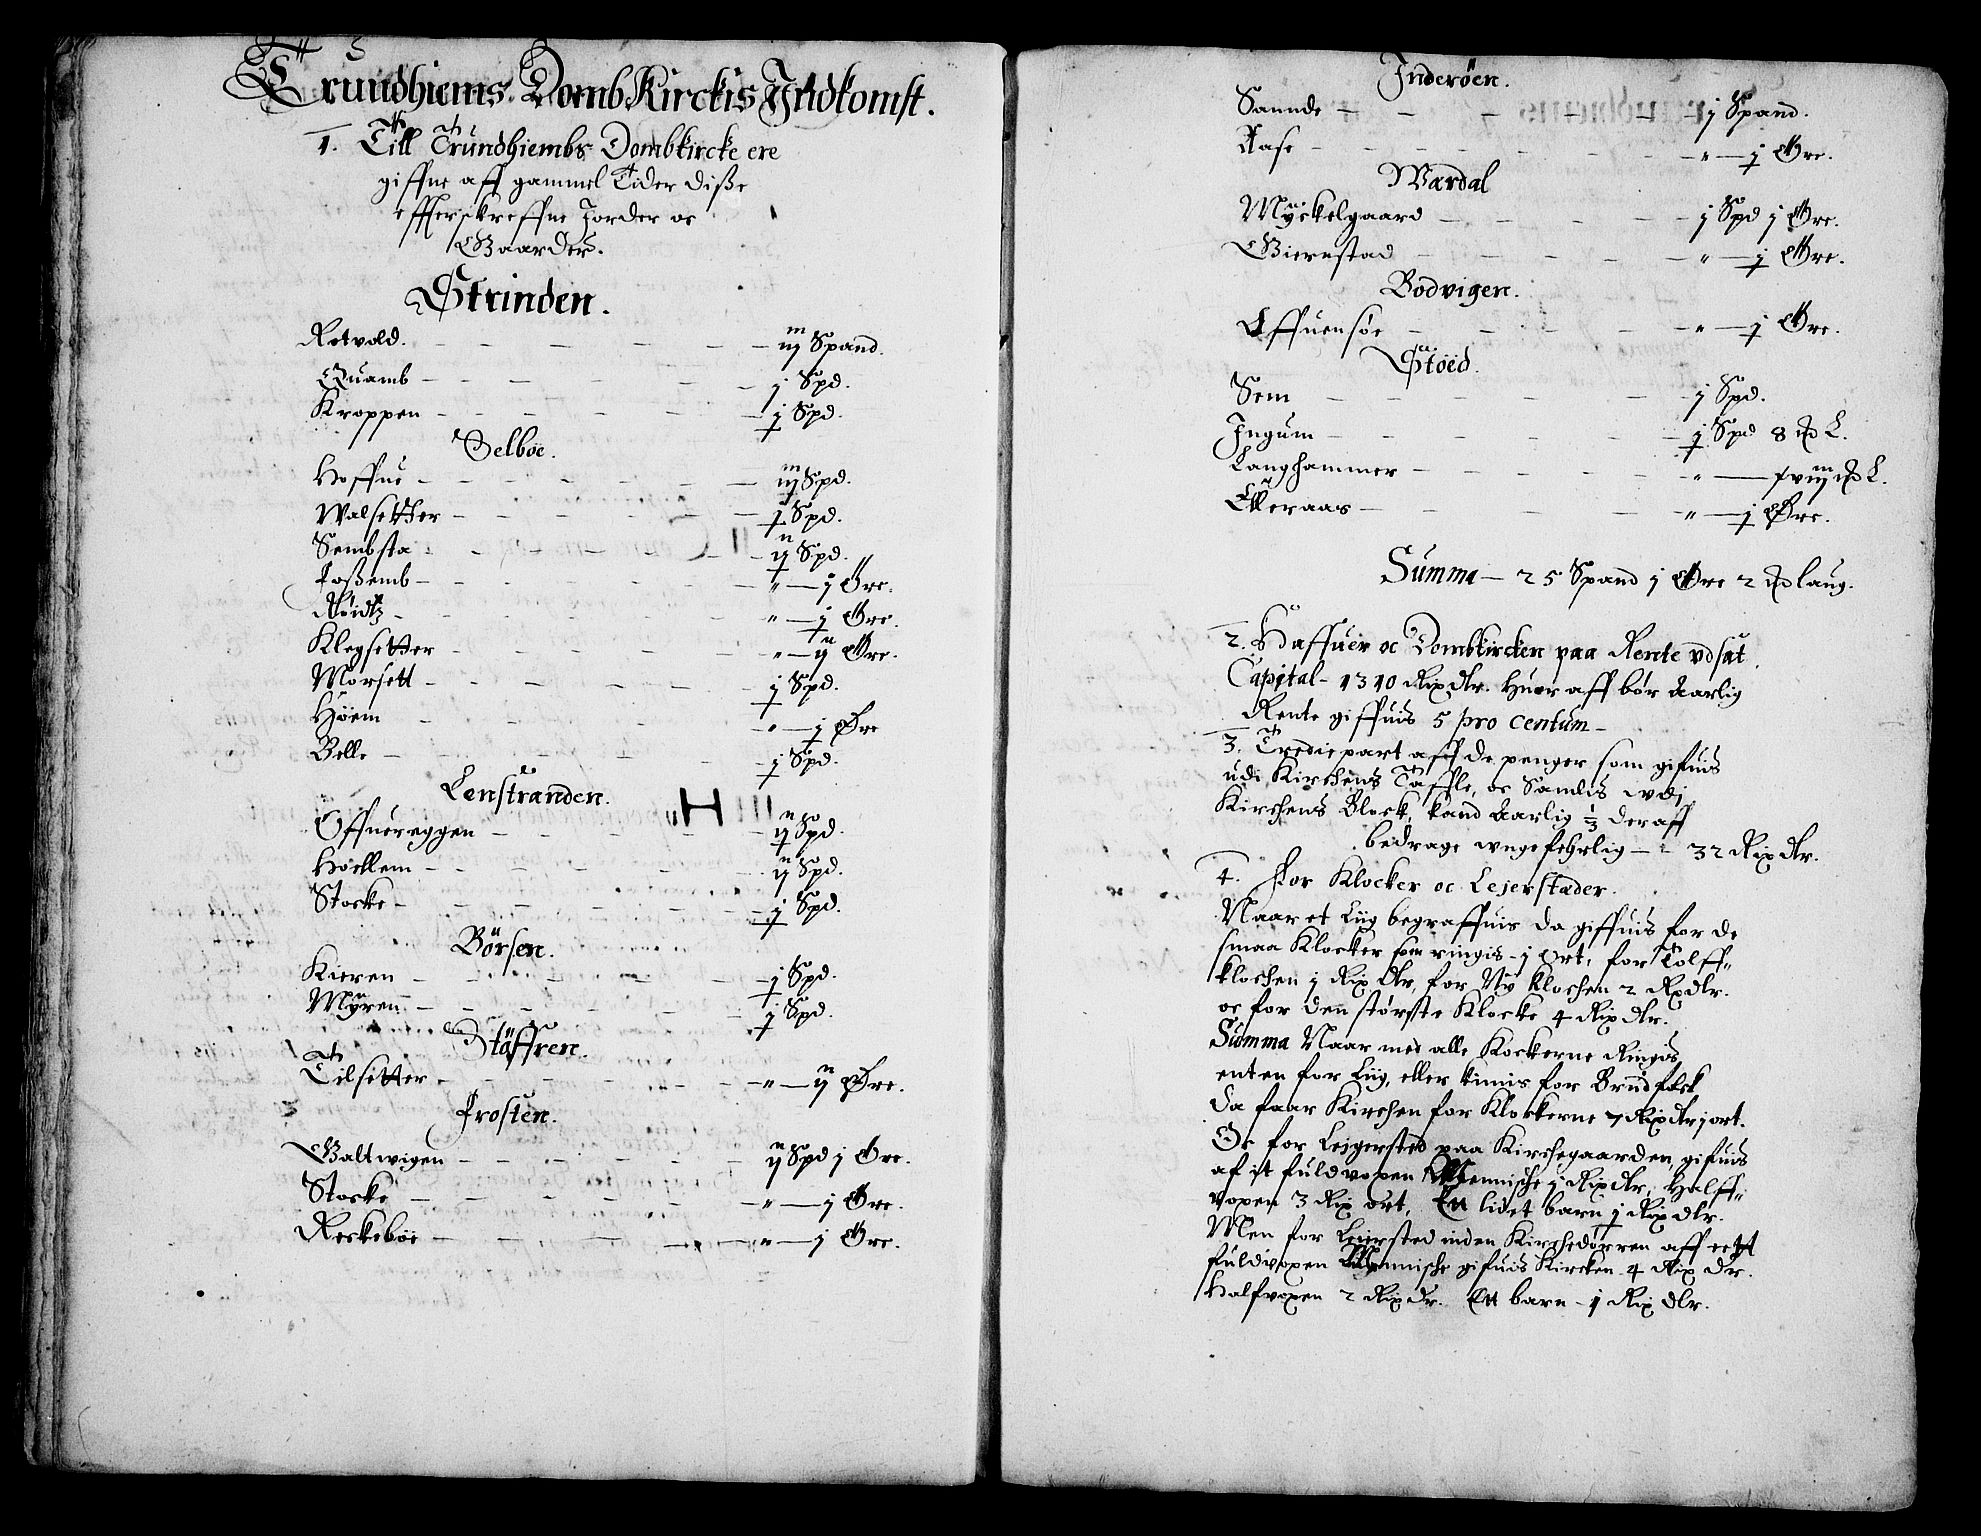 Trundhiems DombKirckis Indkomst.
1. Till Trundhiembs Dombkircke ere
giffne aff gammel Tider disse
effterskreffne Jorder oc
Gaarder.
Strinden.
Rotvold. — iij Spand.
Quamb — j Spd.
Kroppen — j Spd.
Selboe.
Hoffue — iij Spd.
Walsetther — j Spd.
Sembsta — ij Spd.
Fossemb — " — j Øre.
Røidtz — " — j Øre.
Klegsetter — " — ij Øre.
Morsett — j Spd.
Høiem — " — j Øre
Belle — j Spd.
Lenstranden.
Offuereggen — ij Spd.
Hoellem — ij Spd.
Stocke — j Spd.
Børsen.
Kieren — j Spd.
Myren — j Spd.
Støffren.
Tilsetter — " — ij Øre.
Frosten.
Galtwigen — ij Spd j Øre.
Stocke — " — j Øre.
Reckeböe — " — j Øre.
Inderøen.
Saunde — j Spand.
Aase — " — j Øre.
Wærdal
Myckelgaard — j Spd j Øre.
Giernstad — " — j Øre.
Bodvigen.
Effuensøe — " — j Øre.
Støed.
Sem — j Spd.
Ingum — j Spd 8 L.
Langhammer — " L.
Elleraas — " — j Øre.
Summa — 25 Spand j Øre 2 laug.
2. Haffuer oc Dombkircken paa Rente vdsat
Capital — 1310 Rixdlr. Huor aff bør Aarlig
Rente giffuis 5 pro centum —
3. Tredie part aff de penger som gifuis
udi Kirchens Taffle, oc Samlis wdj
Kirchens Block, kand Aarlig 1/3 der aff
bedrage ungefehrlig — 32 Rixdlr.
4. For Klocker oc Lejerstæder.
Naar et Liig begraffuis da giffuis for de
smaa Klocker som ringis j ort, for Tolff-
klochen j Rix dlr, for Ny Klochen 2 Rxdlr.
oc for den største Klocke 4 Rixdlr.
Summa Naar med alle Kockerne Ringis,
enten for Liig, eller kimis for Brudfolck
da faar Kirchen for Klockerne 7 Rixdlr j ort.
Oc for Leigersted paa Kirchegaarden, gifuis
af it fuldvoxen Mennische j Rixdlr, Halff-
voxen 3 Rix ort, Ett lidet barn j Rixdlr.
Men for Leiersted inden Kirchedørren aff eett
fuldvoxen Mennische gifuis Kircken 4 Rix dr.
Halfvoxen 2 Rix dr. Ett barn — j Rix dlr.